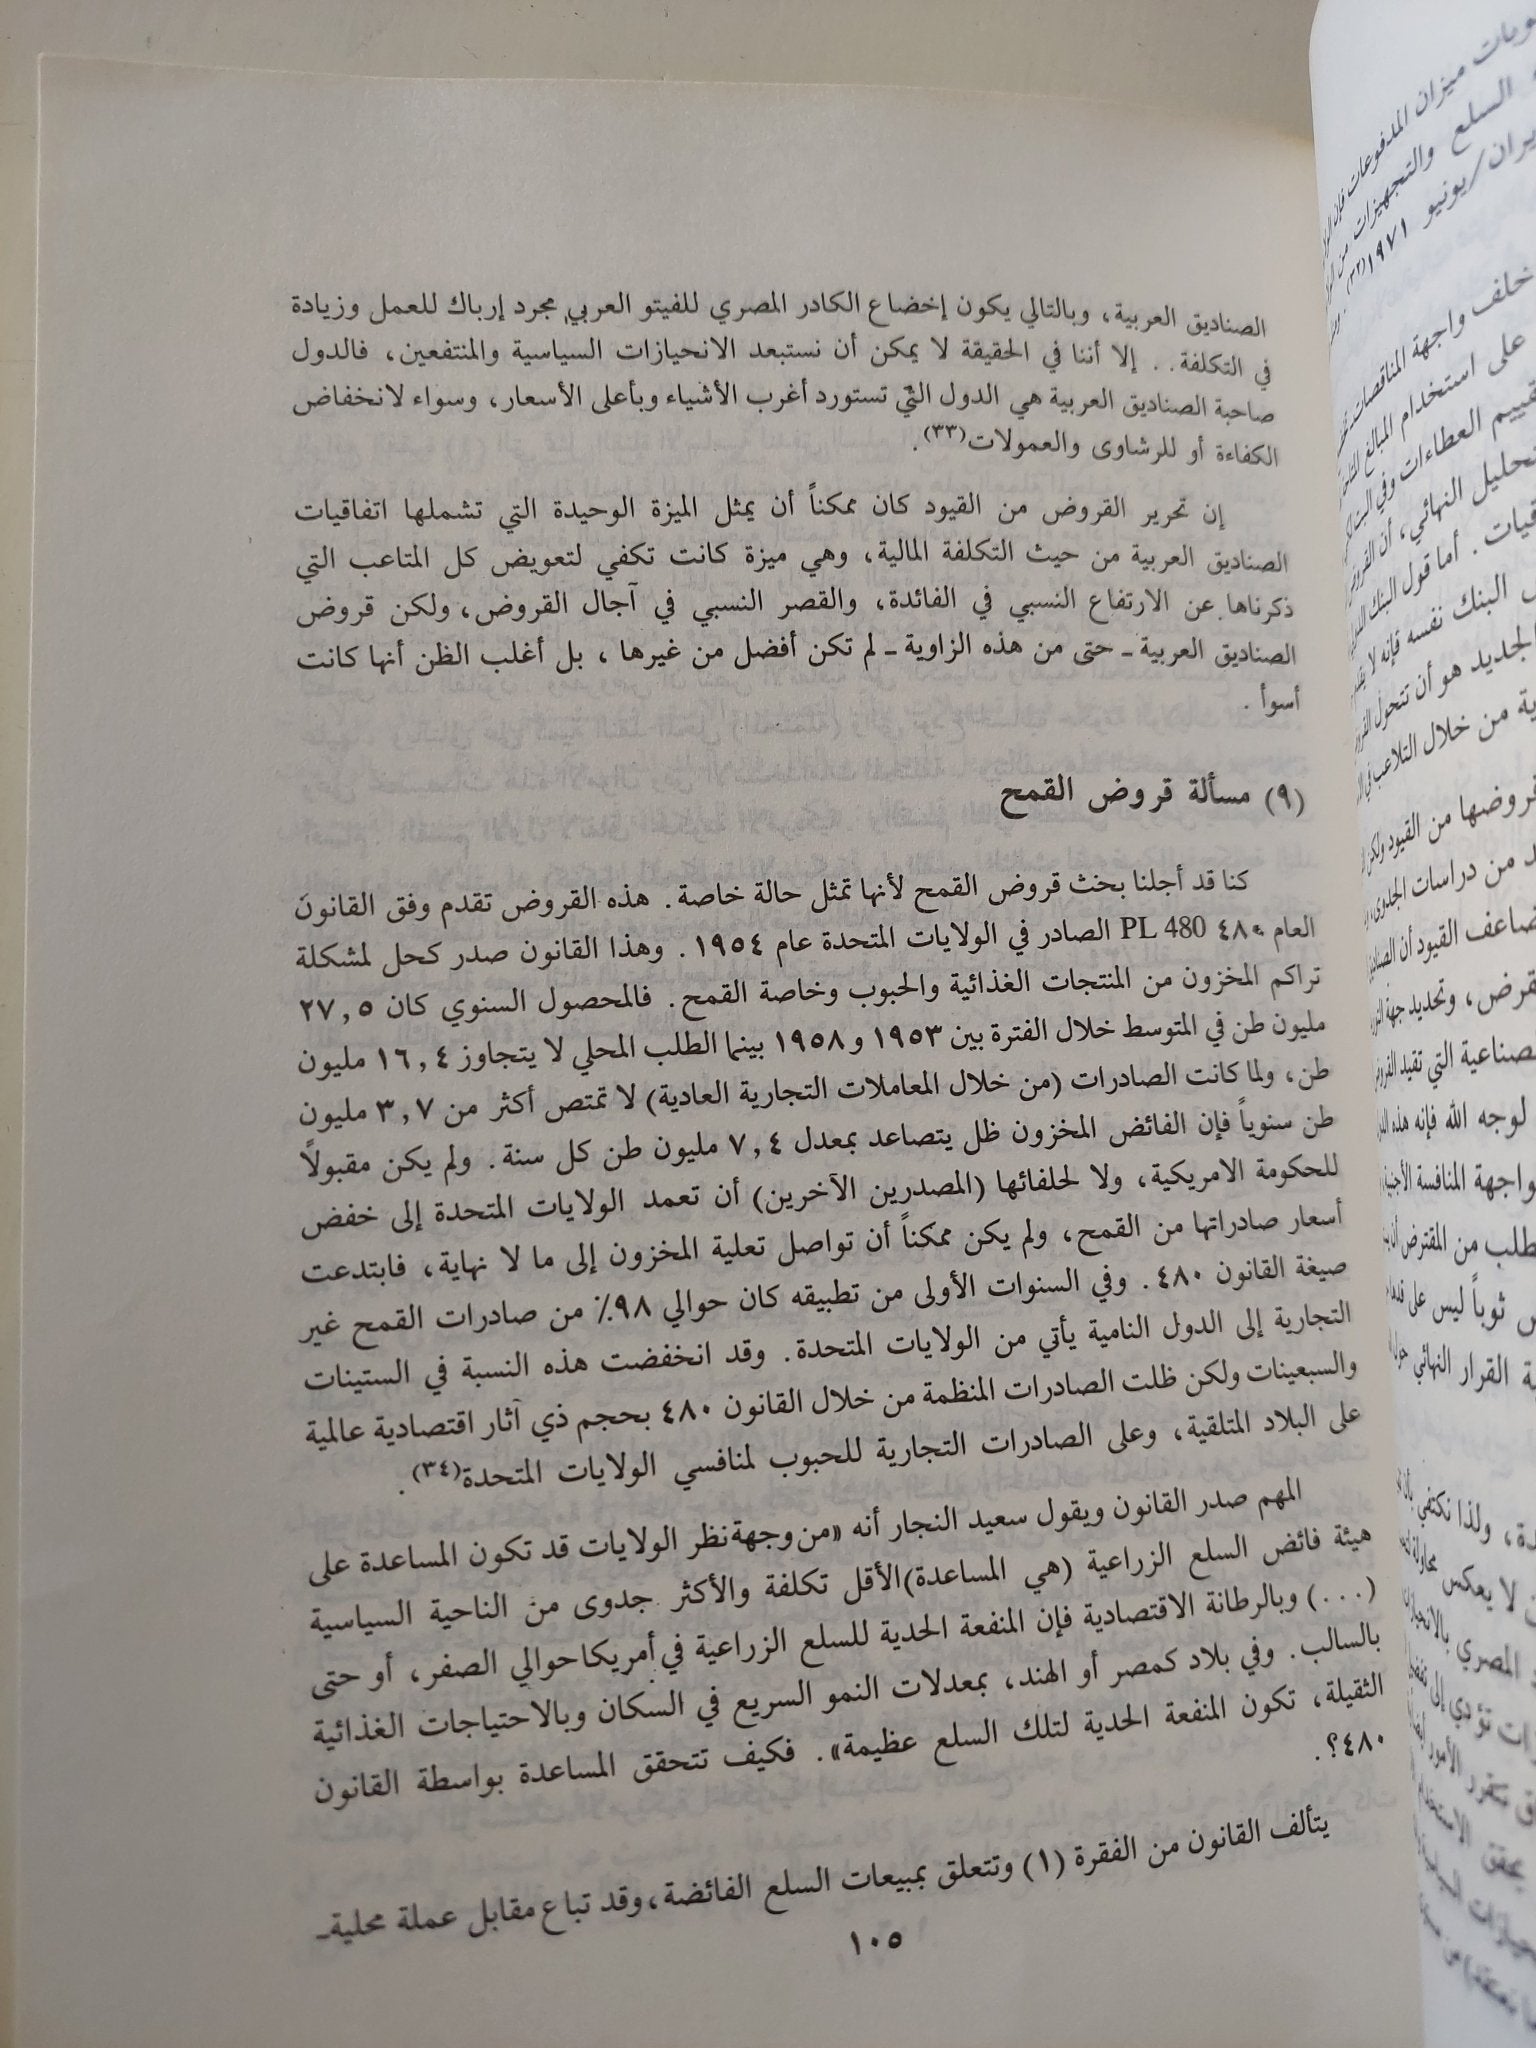 الصناديق العربية، وبالتالي يكون إخضاع الكادر المصري للفيتو العربي مجرد إرباك للعمل وزيادة
في التكلفة. . إلا أننا في الحقيقة لا يمكن أن نستبعد الانحيازات السياسية والمنتفعين، فالدول
صاحبة الصناديق العربية هي الدول التي تستورد أغرب الأشياء وبأعلى الأسعار، وسواء لانخفاض
الكفاءة أو للرشاوى والعمولات(٣٣).
إن تحرير القروض من القيود كان ممكناً أن يمثل الميزة الوحيدة التي تشملها اتفاقيات
الصناديق العربية من حيث التكلفة المالية، وهي ميزة كانت تكفي لتعويض كل المتاعب التي
ذكرناها عن الارتفاع النسبي في الفائدة، والقصر النسبي في آجال القروض، ولكن قروض
الصناديق العربية ـ حتى من هذه الزاوية ـ لم تكن أفضل من غيرها ، بل أغلب الظن أنها كانت
أسوأ .
(٩) مسألة قروض القمح
كنا قد أجلنا بحث قروض القمح لأنها تمثل حالة خاصة. هذه القروض تقدم وفق القانون
العام ٤٨٠ PL 480 الصادر في الولايات المتحدة عام ١٩٥٤ . وهذا القانون صدر كحل لمشكلة
تراكم المخزون من المنتجات الغذائية والحبوب وخاصة القمح. فالمحصول السنوي كان ٢٧,٥
مليون طن في المتوسط خلال الفترة بين ١٩٥٣ و ١٩٥٨ بينما الطلب المحلي لا يتجاوز ١٦,٤ مليون
طن، ولما كانت الصادرات (من خلال المعاملات التجارية العادية) لا تمتص أكثر من ٣,٧ مليون
طن سنوياً فإن الفائض المخزون ظل يتصاعد بمعدل ٧,٤ مليون طن كل سنة. ولم يكن مقبولاً
للحكومة الامريكية، ولا لحلفائها (المصدرين الآخرين) أن تعمد الولايات المتحدة إلى خفض
أسعار صادراتها من القمح، ولم يكن ممكناً أن تواصل تعلية المخزون إلى ما لا نهاية، فابتدعت
صيغة القانون ٤٨٠. وفي السنوات الأولى من تطبيقه كان حوالي ٩٨٪ من صادرات القمح غير
التجارية إلى الدول النامية يأتي من الولايات المتحدة. وقد انخفضت هذه النسبة في الستينات
والسبعينات ولكن ظلت الصادرات المنظمة من خلال القانون ٤٨٠ بحجم ذي آثار اقتصادية عالمية
على البلاد المتلقية، وعلى الصادرات التجارية للحبوب لمنافسي الولايات المتحدة(٣٤).
المهم صدر القانون ويقول سعيد النجار أنه «من وجهة نظر الولايات قد تكون المساعدة على
هيئة فائض السلع الزراعية (هي المساعدة) الأقل تكلفة والأكثر جدوى من الناحية السياسية
(...) وبالرطانة الاقتصادية فإن المنفعة الحدية للسلع الزراعية في أمريكا حوالي الصفر، أو حتى
بالسالب. وفي بلاد كمصر أو الهند، بمعدلات النمو السريع في السكان وبالاحتياجات الغذائية
الثقيلة، تكون المنفعة الحدية لتلك السلع عظيمة». فكيف تتحقق المساعدة بواسطة القانون
٤٨٠؟ .
يتألف القانون من الفقرة (١) وتتعلق بمبيعات السلع الفائضة، وقد تباع مقابل عملة محلية ـ
١٠٥
ميزان المدفوعات
السلع والتجهيزات من
يونيو ١٩٧١
خلف واجهة المناقصات
على استخدام المبالغ
العطاءات وفي
النهائي، أن
أما قول البنك
البنك نفسه فإنه لا
الجديد هو أن تتحول
من خلال التلاعب في
من القيود ولكن
من دراسات الجدوى،
القيود أن
وتحديد جهة
التي تقيد
لوجه الله فإنه هذه
المنافسة الأجنبية
من المقترض أن
ثوباً ليس على
القرار النهائي حول
ولذا نكتفي
لا يعكس
المصري
تؤدي إلى
الأمور